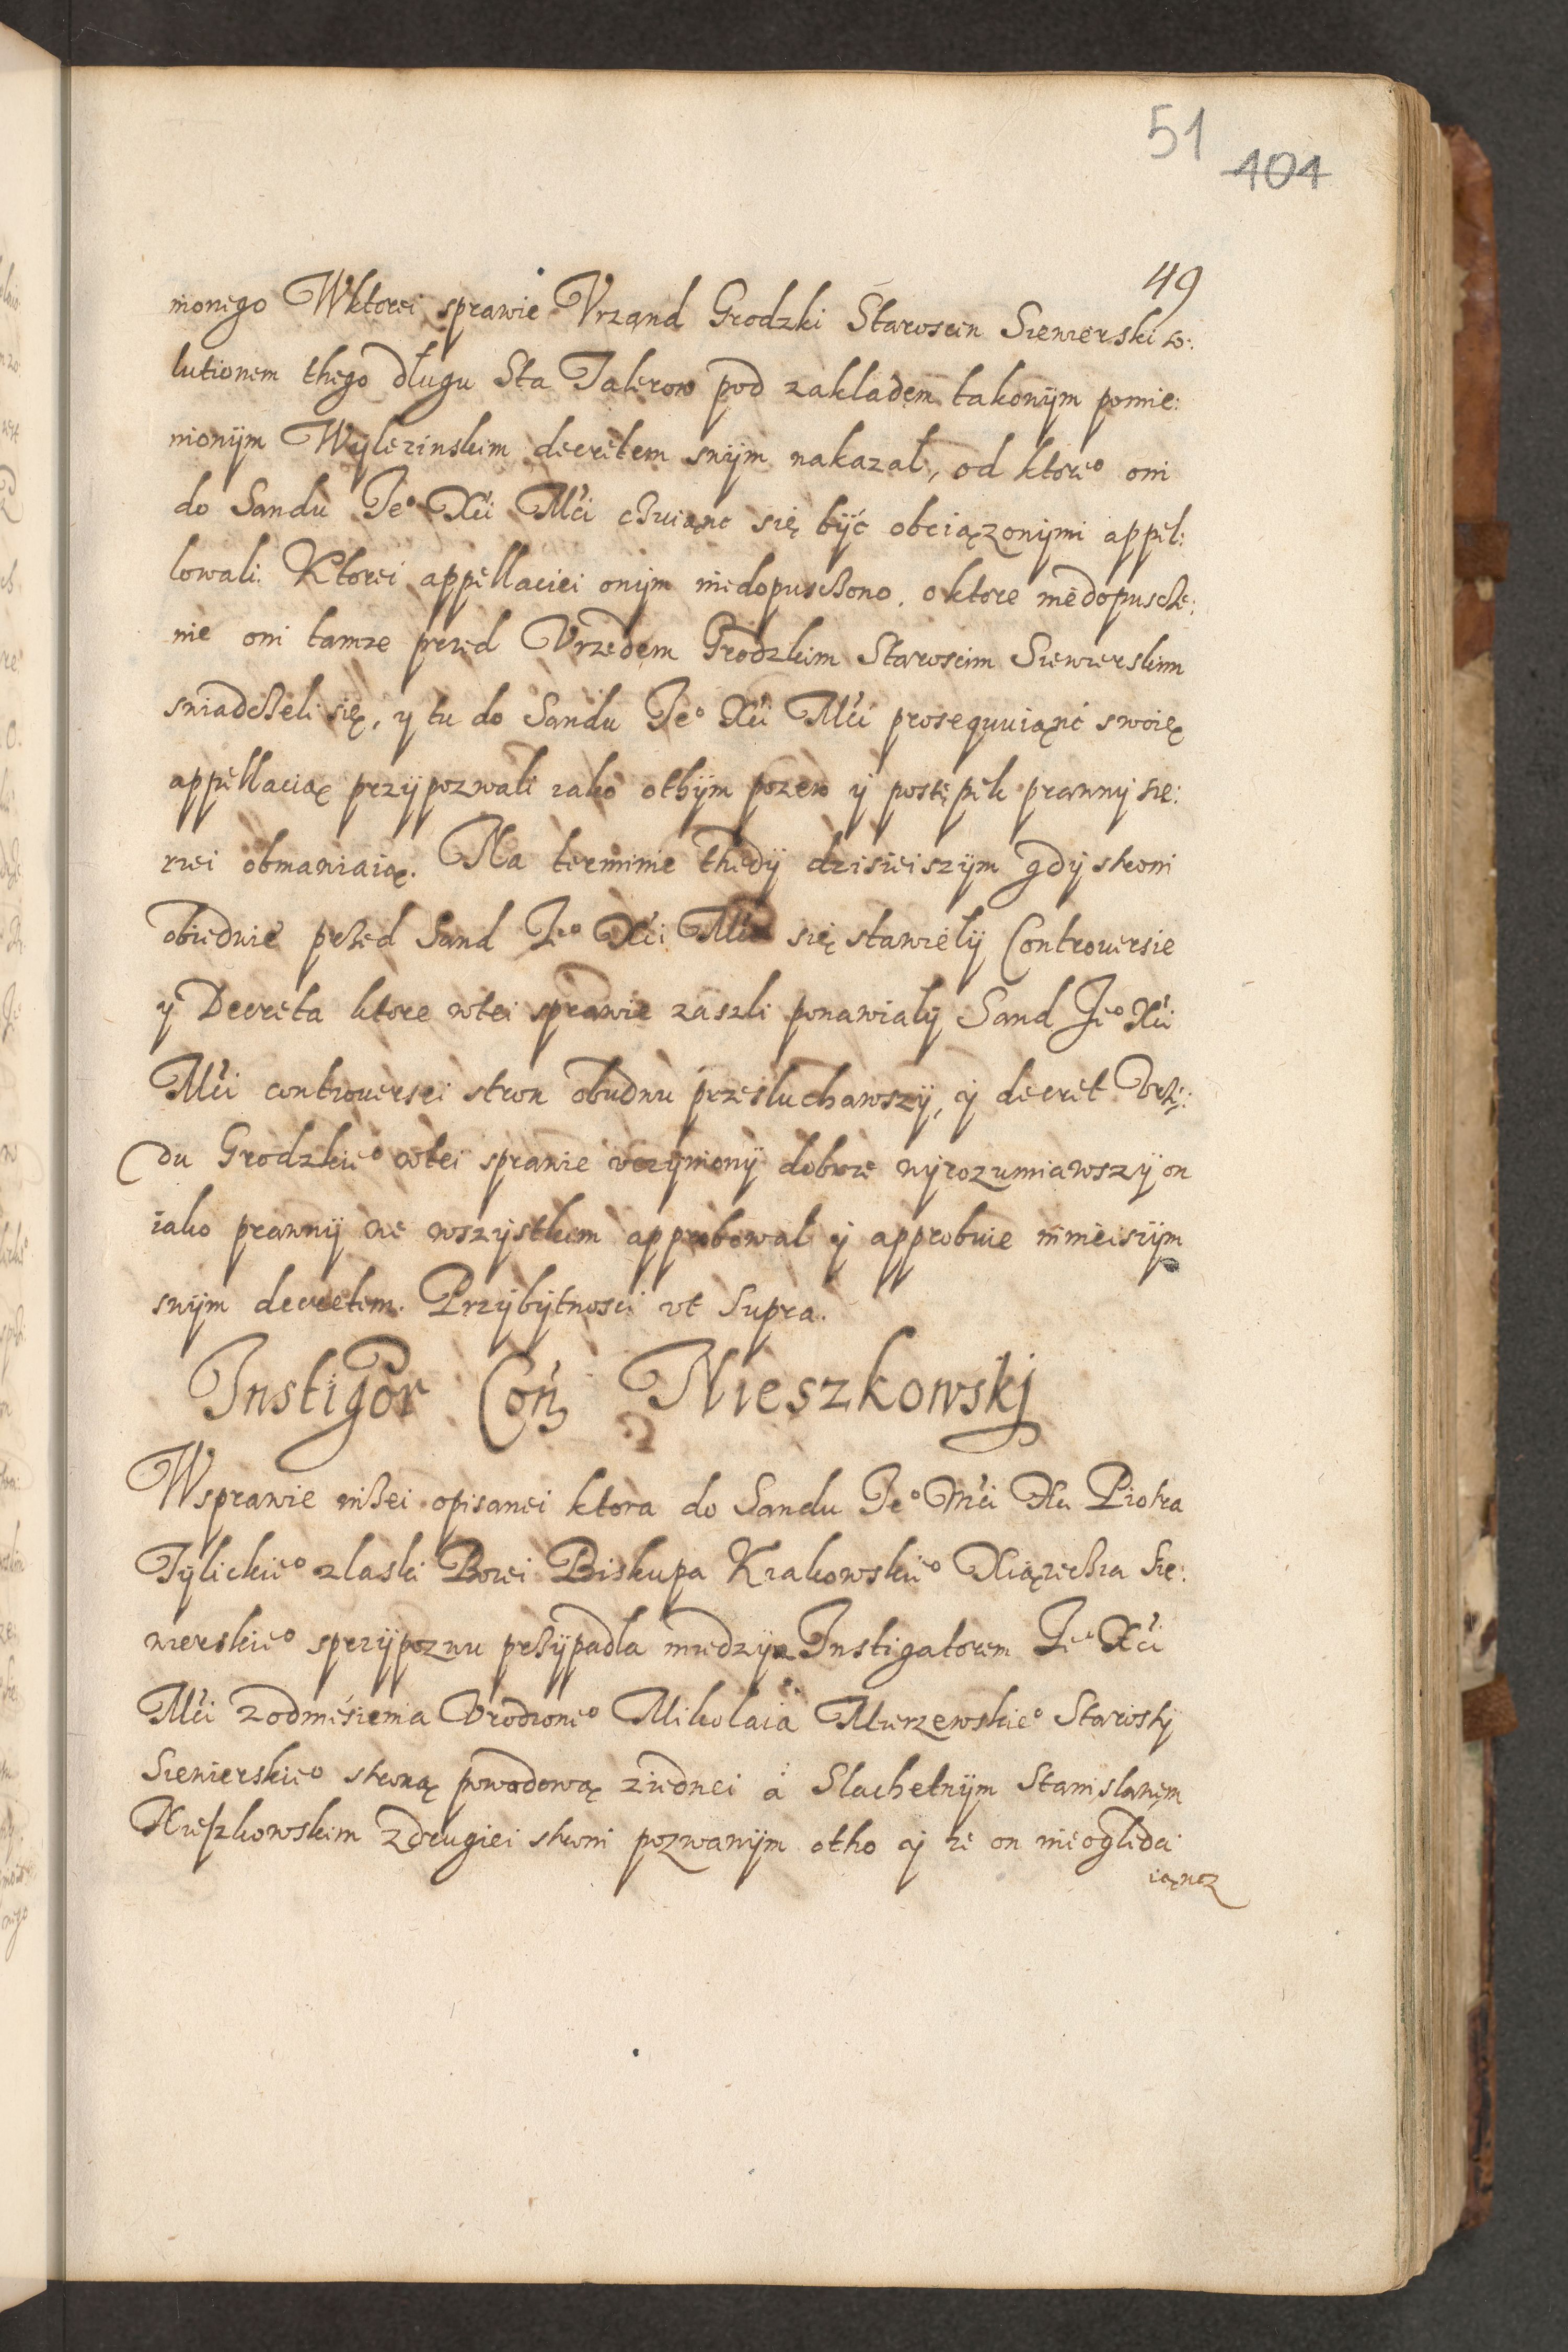 51
404
49
nionego Wktorei sprawie Vrzand Grodzki Staroscin Siewierski so:
lutionem thego długu Sta Talerow pod zakladem takowym pomie:
nionÿm Wÿlezinskim decretem swÿm nakazał, od ktore° oni
do Sandu Je° Xci Mci cZuiąnc się bÿć obciązonÿmi appel:
lowali. Ktorei appellaciei onÿm niedopuscZono, o ktore niedopuscZe:
nie oni tamze przed Vrzedem Grodzkim Staroscim Siewierskim
swiadcZeli się, y tu do Sandu Je° Xci Mci prosequuiąnć swoię
appellacią przÿpozwali iako othÿm pozew ÿ postępek prawnÿ sie:
rzei obmawiaią. Na terminie thedÿ dzisieiszÿm gdÿ stronÿ
obiedwie pRzed Sand Je° Xci Mci się stawielÿ Controuersie
ÿ Decreta ktore wtei sprawie zaszli ponawialÿ Sand Je° Xci
Mci controuersei stron obudwu przesluchawszÿ, ÿ decret Vrzę:
du Grodzkie° wtei sprawie vczÿnionÿ dobrze wÿrozumiawszÿ on
iako prawnÿ we wszÿstkim approbował ÿ approbuie ninieiszÿm
swÿm decretem. Przÿbÿtnosci vt Supra.
Instigor Con Nieszkowskj
Wsprawie niZei opisanei ktora do Sandu Je° Mci Xa Piotra
Tÿlickie° zlaski Bozei Biskupa Krakowskie° XiązecZia Sie:
wierskie° sprzÿpozwu pRzÿpadla miedzÿ Instigatorem Je° Xci
Mci zodniesienia Vrodzone° Mikolaia Mierzewskie° Starostÿ
Siewierskie° stroną powodową ziednei á Slachetnÿm Stanislawem
Nieszkowskim zdrugiei stroni pozwanÿm otho ÿ ze on nieogląda
iąncz